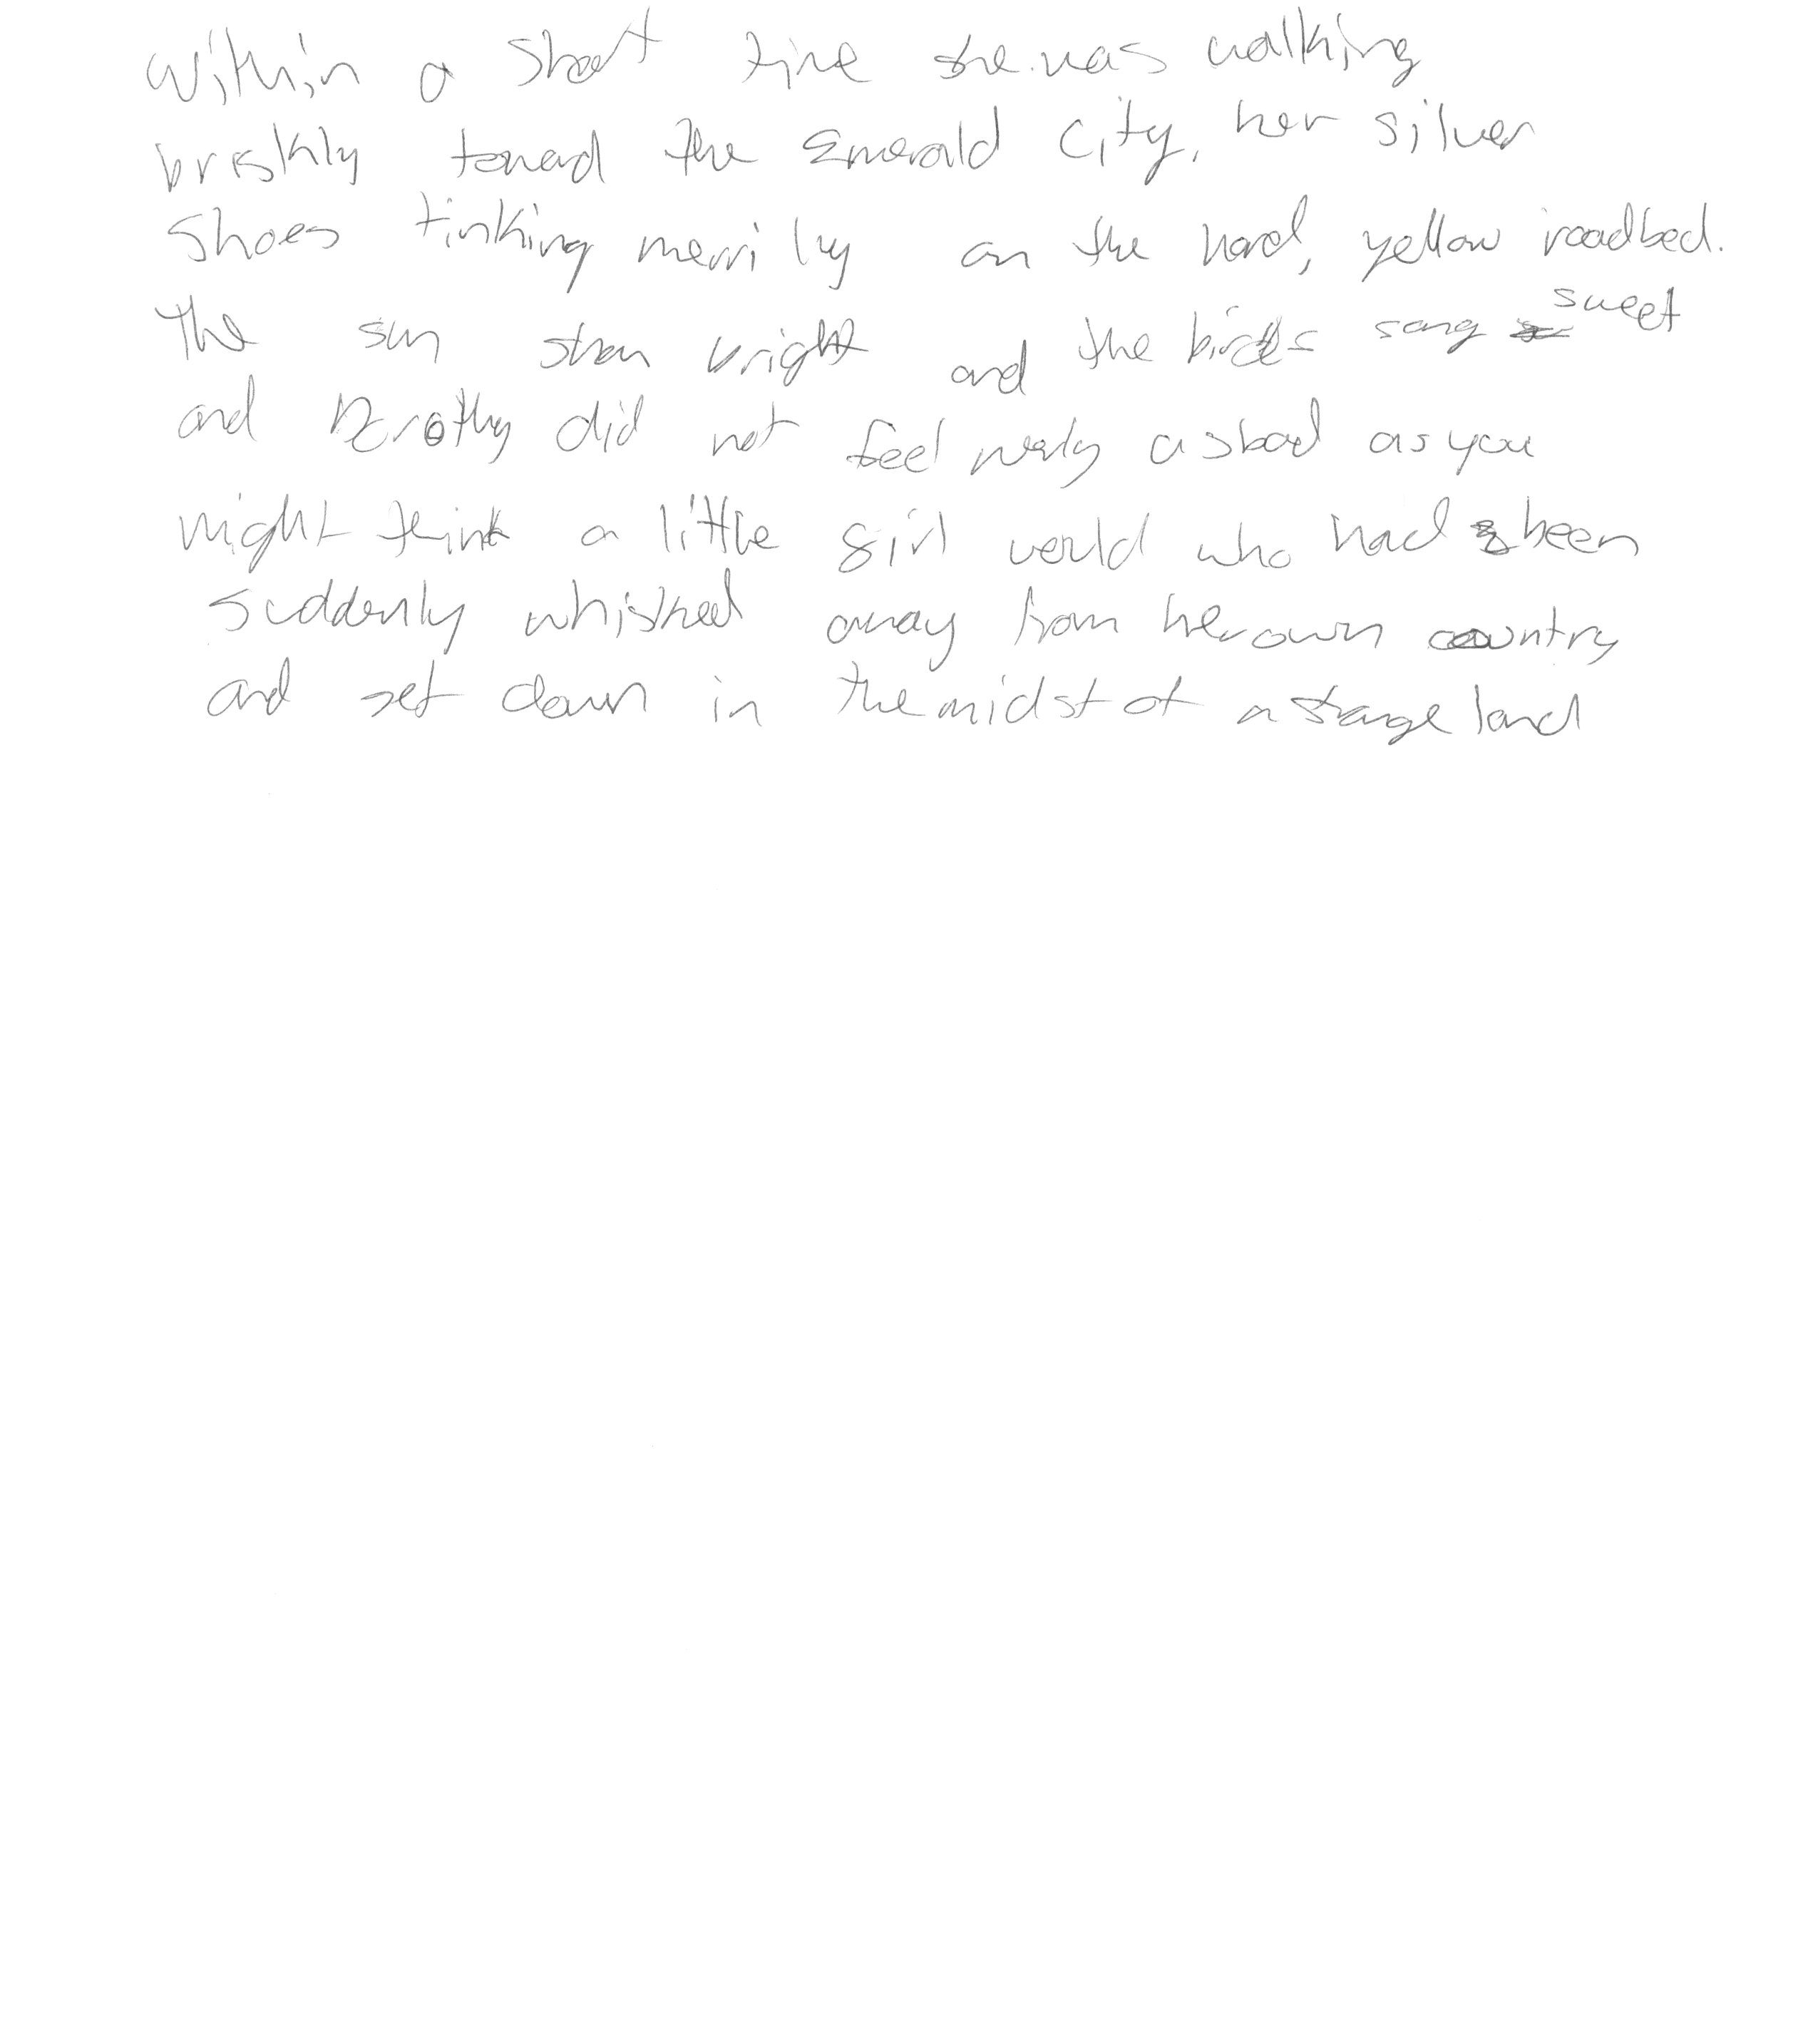 Within a short time she was walking
briskly toward the Emerald City, her silver
shoes tinking merrily on the hard, yellow roadbed.
The sun shon bright and the birds song sweet
and Dorothy did not feel nearly as bad as you
might think a little girl would who had been
suddenly whisked away from her own country
and set down in the midst of a strange land